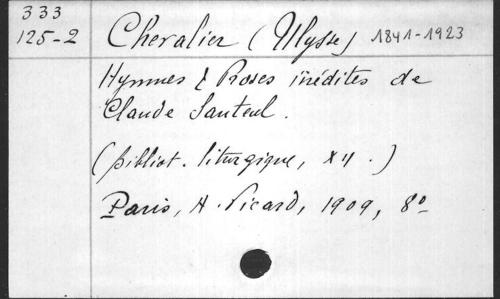 333
125-2 Chevalier (Ulysse) 1841-1923
Hymnes & Proses inédites de
Claude Santeul.
(bibliot. liturgique, XII.)
Paris, A. Picard, 1909, 8o